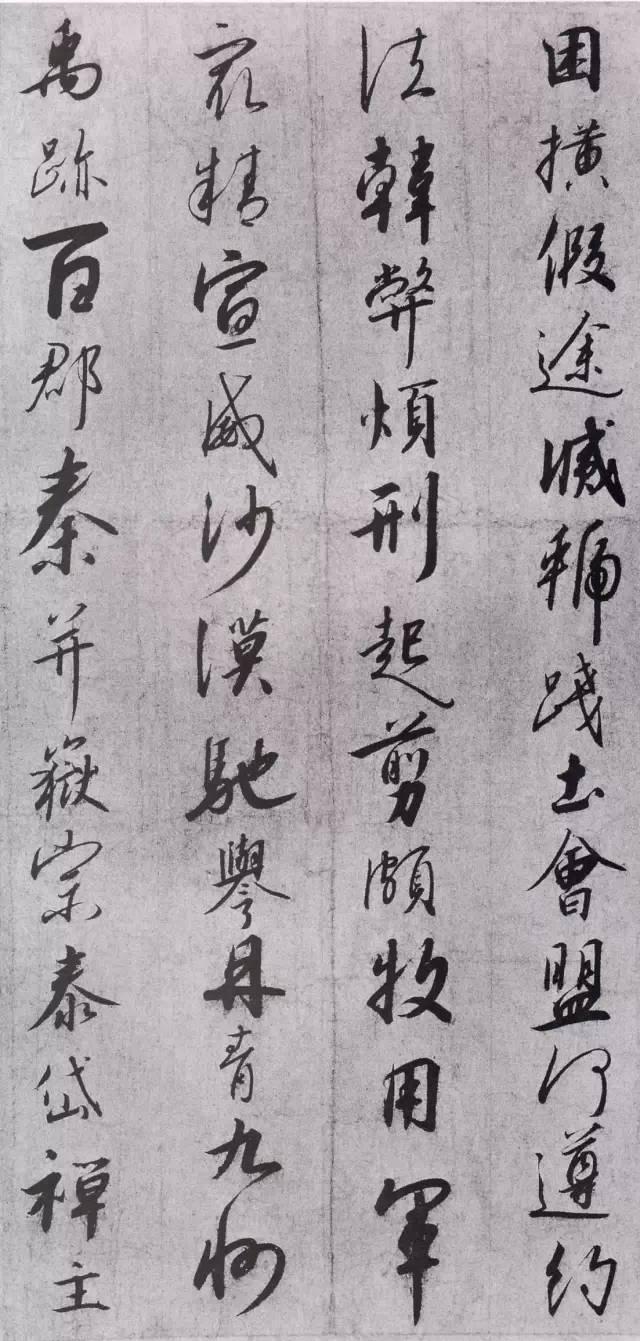 困横假途滅虢踐土會盟何遵約
法韓弊煩刑起翦頗牧用軍
最精宣威沙漠馳譽丹青九州
禹跡百郡秦并嶽宗泰岱禪主